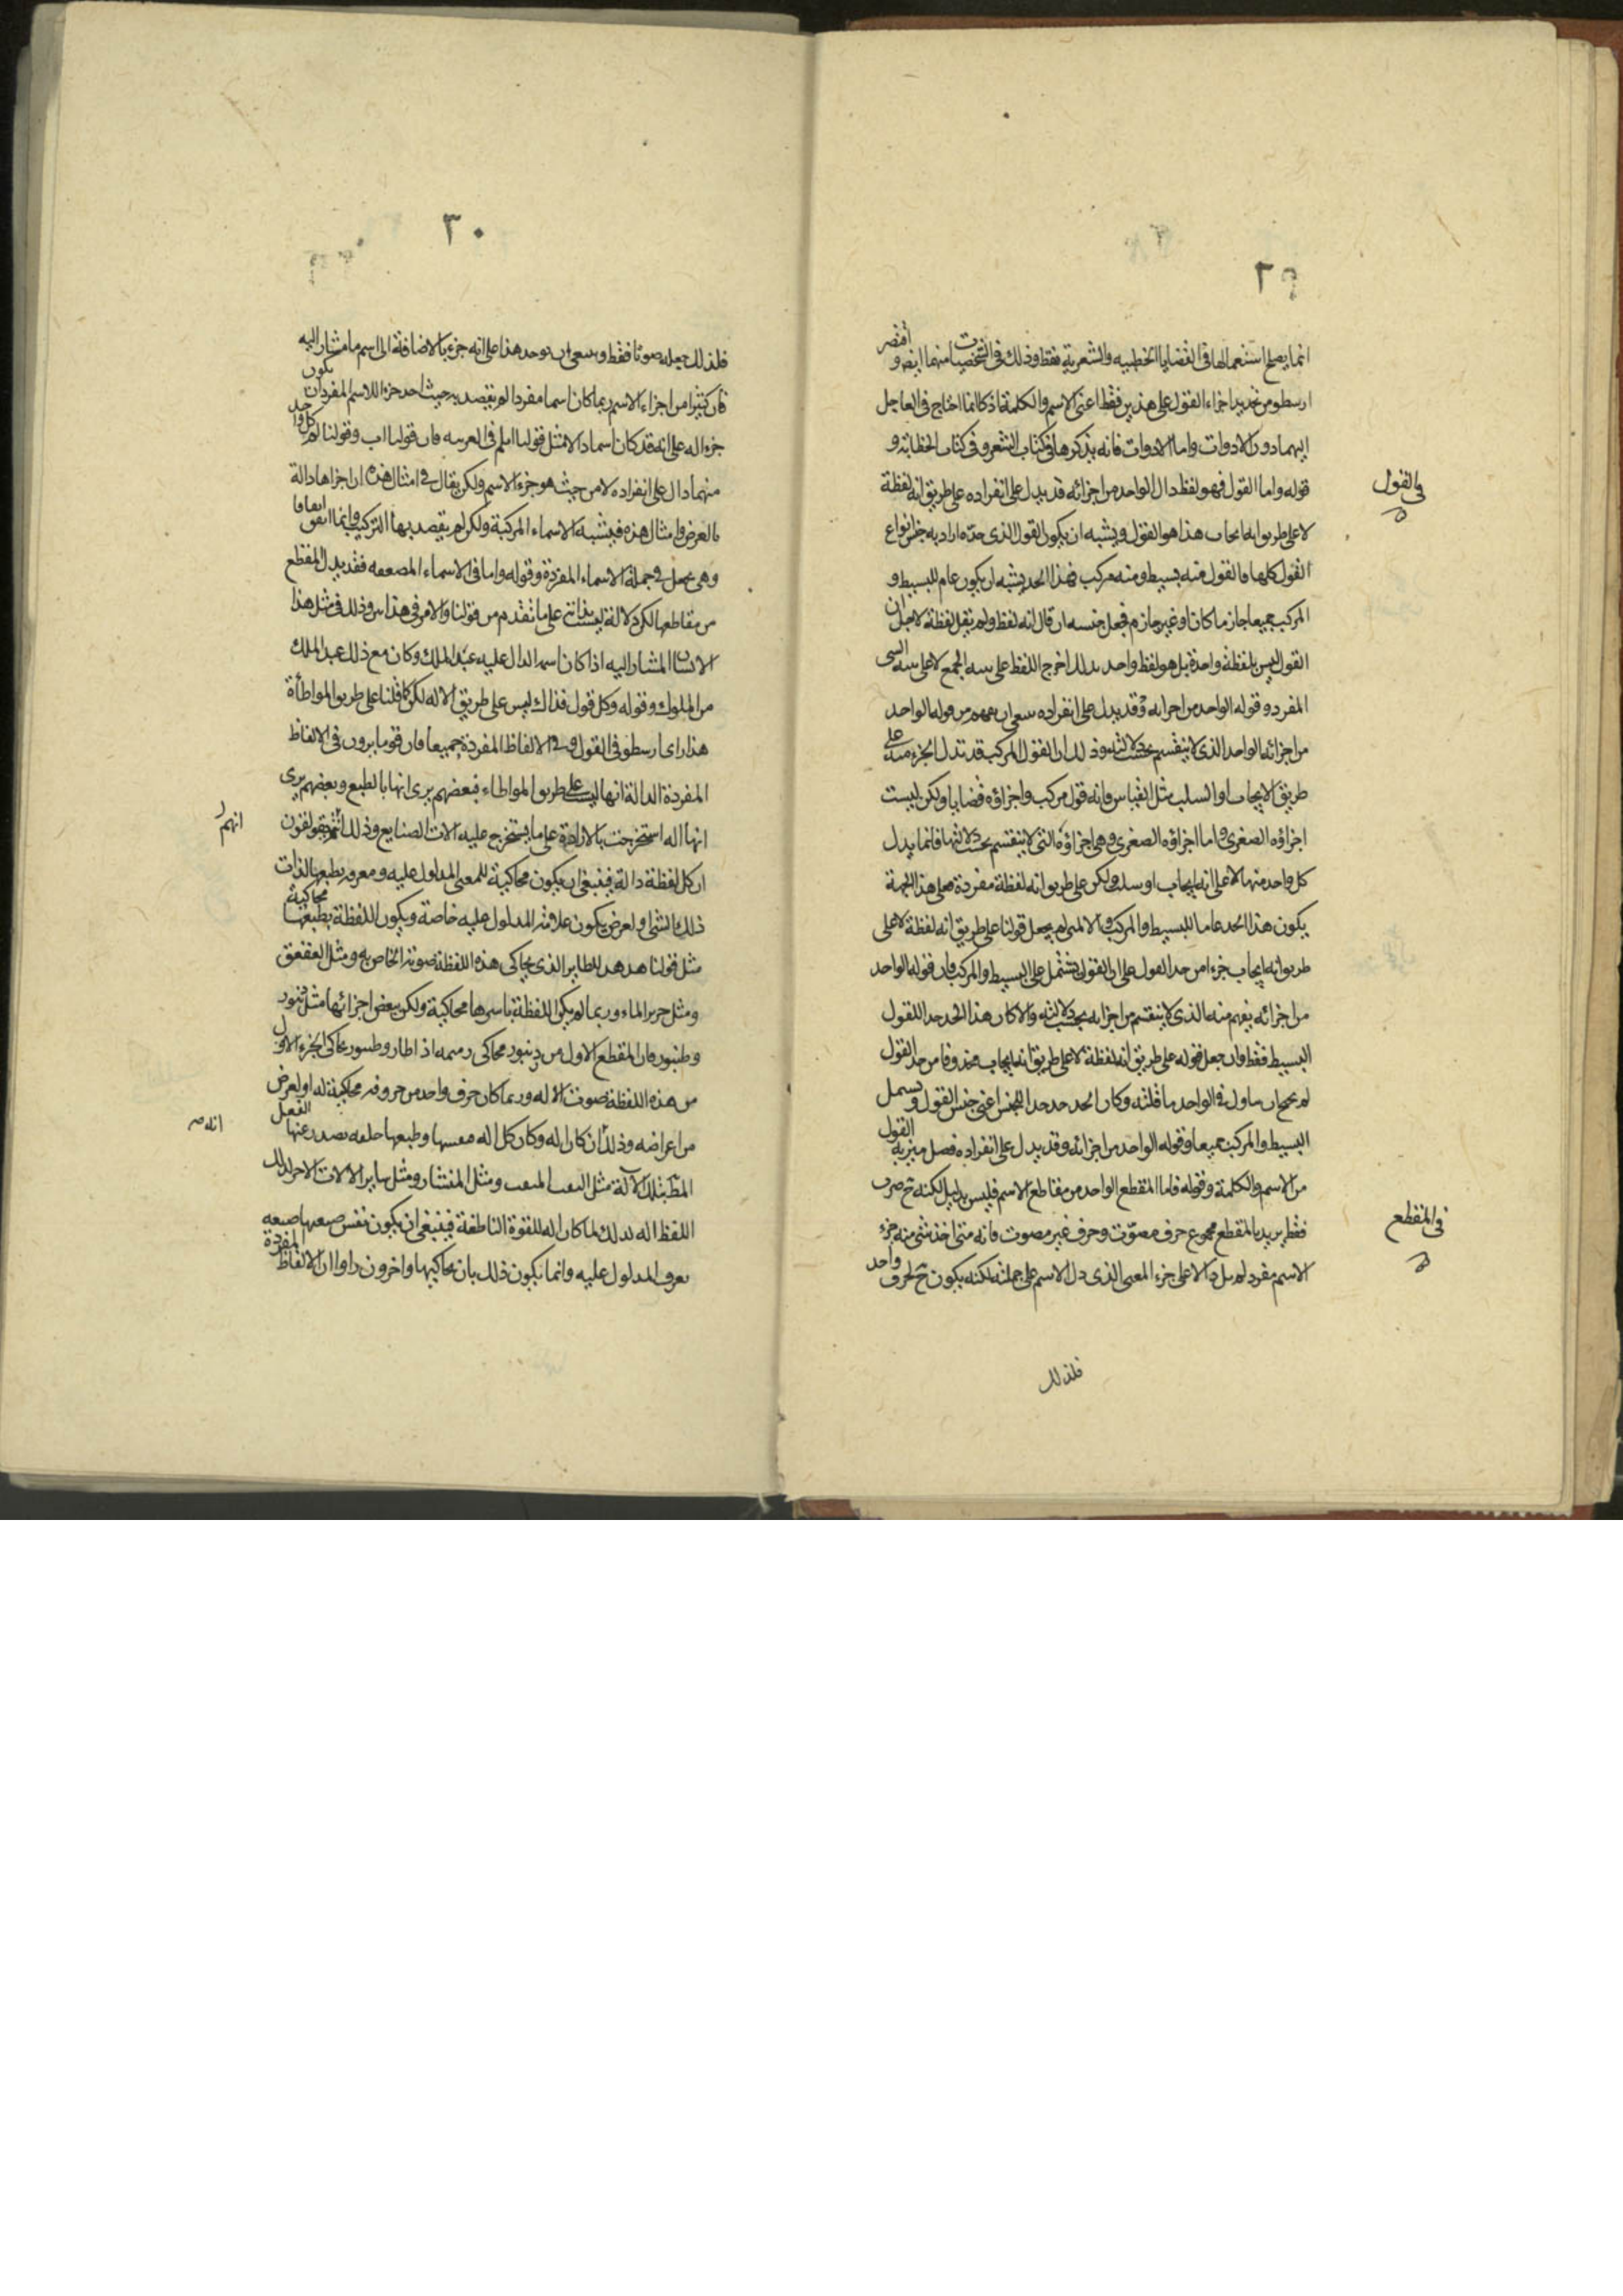 ٢٩
انما يصلح استعمالها في القضايا الخطبيه والشعرية فقط وذلك في الشخصيات منهما ايضا و اقتصر
ارسطو من تحديد اجزاء القول على هذين فقط اعني الاسم والكلمة اذ كان انما احتاج في العاجل
اليهما دون الادوات واما الادوات فانه يذكرها في كتاب الشعر وفي كتاب الخطابة و
في القول
قوله واما القول فهو لفظ دال الواحد من اجزائه قد يدل على انفراده على طريق انه لفظة
لا على طريق انه ايجاب هذا هو القول ويشبه ان يكون القول الذي حده اراد به جنس انواع
القول كلها فالقول منه بسيط ومنه مركب فهذا الحد يشبه ان يكون عام للبسيط و
المركب جميعا جازما كان او غير جازم فجعل جنسه ان قال انه لفظ ولم يقل لفظة لاجل ان
القول ليس بلفظة واحدة بل هو لفظ واحد بذلك اخرج اللفظ على بنيه الجمع لا على بنيه الشي
المفرد وقوله الواحد من اجزائه وقد يدل على انفراده ينبغي ان يفهم من قوله الواحد
من اجزائه الواحد الذي لا ينقسم بحسب دلالته وذلك ان القول المركب قد تدل الجزء منه على
طريق الايجاب او السلب مثل القياس فانه قول مركب واجزاؤه قضايا ولكن ليست
اجزاؤه الصغرى واما اجزاؤه الصغرى وهي اجزاؤه التي لا ينقسم بحسب دلالتها فانما يدل
كل واحد منها لا على انه ايجاب او سلب ولكن على طريق انه لفظة مفردة فعلى هذا الجهة
يكون هذا الحد عاما للبسيط والمركب والا لمن لم يجعل قولنا على طريق انه لفظة لا على
طريق انه ايجاب جزءا من حد القول على ان القول يشتمل على البسيط والمركب فان قوله الواحد
من اجزائه يفهم منه الذي لا ينقسم من اجزائه بحسب دلالته والا كان هذا الحد حدا للقول
البسيط فقط وان جعل قوله على طريق انه لفظة لا على طريق انه ايجاب محذوفا من حد القول
لم يحتج ان يتاول في الواحد ما قلته وكان الحد حد حدا للجنس اعني جنس القول ويشمل
البسيط والمركب جميعا وقوله الواحد من اجزائه وقد يدل على انفراده فصل ميز به القول
من الاسم والكلمة وقوله فاما المقطع الواحد من مقاطع الاسم فليس بدليل لكنه ح صوت
في المقطع
فقط يريد بالمقطع مجموع حرف مصوّت وحرف غير مصوت فانه متى اخذ شئ منه جزء
الاسم مفرد لم يدل دالا على جزء المعنى الذي دل الاسم على جملته لكنه يكون ح لحرف واحد
فلذلك
٣٠
فلذلك جعله صوتا فقط وينبغي ان يوخذ هذا على انه جزء بالاضافة الى اسم ما مشار اليه
فان كثيرا من اجزاء الاسم ربما كان اسما مفردا لم يقصد به حيث اخذ جزءا للاسم المفرد ان يكون
جزءا له على انه قد كان اسما دالا مثل قولنا ابلم في العربيه فان قولنا اب وقولنا لم كل واحد
منهما دال على انفراده لا من حيث هو جزء الاسم ولكن يقال في امثال هذه ان اجزاها دالة
بالعرض وامثال هذه فيشبه الاسماء المركبة ولكن لم يقصد بها التركيب وانما اتفق اتفاقا
وهي يجعل في جملة الاسماء المفردة وقوله واما في الاسماء المضعفه فقد يدل المقطع
من مقاطعها لكن دلالة ليست بذاته على ما تقدم من قولنا والامر في هذا بين وذلك في مثل هذا
الانسان المشار اليه اذا كان اسمه الدال عليه عبد الملك وكان مع ذلك عبد الملك
من الملوك وقوله وكل قول فدال ليس على طريق الاله لكن كما قلنا على طريق المواطأة
هذا راى ارسطو في القول وفي الالفاظ المفردة جميعا فان قوما يرون في الالفاظ
المفردة الدالة انها ليست على طريق المواطاء فبعضهم يرى انها بالطبع وبعضهم يرى
انها اله استخرجت بالارادة على ما يستخرج عليه الات الصنايع وذلك انهم يقولون
انهم
ان كل لفظة دالة فينبغي ان يكون محاكية للمعنى المدلول عليه ومعرفه بطبعها لذات
ذلك الشئ او لعرض يكون علامة المدلول عليه خاصة ويكون اللفظة بطبعها محاكية
مثل قولنا هدهد للطاير الذي يحاكي هذه اللفظة صوته الخاص به ومثل العقعق
ومثل خرير الماء وربما لم يكن اللفظة باسرها محاكية ولكن بعض اجزائها مثل زنبور
وطنبور فان المقطع الاول من زنبور محاكى زميمه اذا طار وطنبور يحاكى الجزء الاول
من هذه اللفظة صوت الاله وربما كان حرف واحد من حروفه محاكية له او لعرض
من اعراضه وذلك ان كان اله وكان كل اله بنفسها وطبعها خلقه يصدر عنها الفعل
المطلب بتلك الالة مثل الثقب المثقب ومثل المنشار ومثل ساير الالات الاخر كذلك
اللفظ اله لذلك لما كان اله للقوة الناطقة فينبغي ان يكون نفس صيغها صيغه
يعرف المدلول عليه وانما يكون ذلك بان يحاكيها واخرون راوا ان الالفاظ المفردة